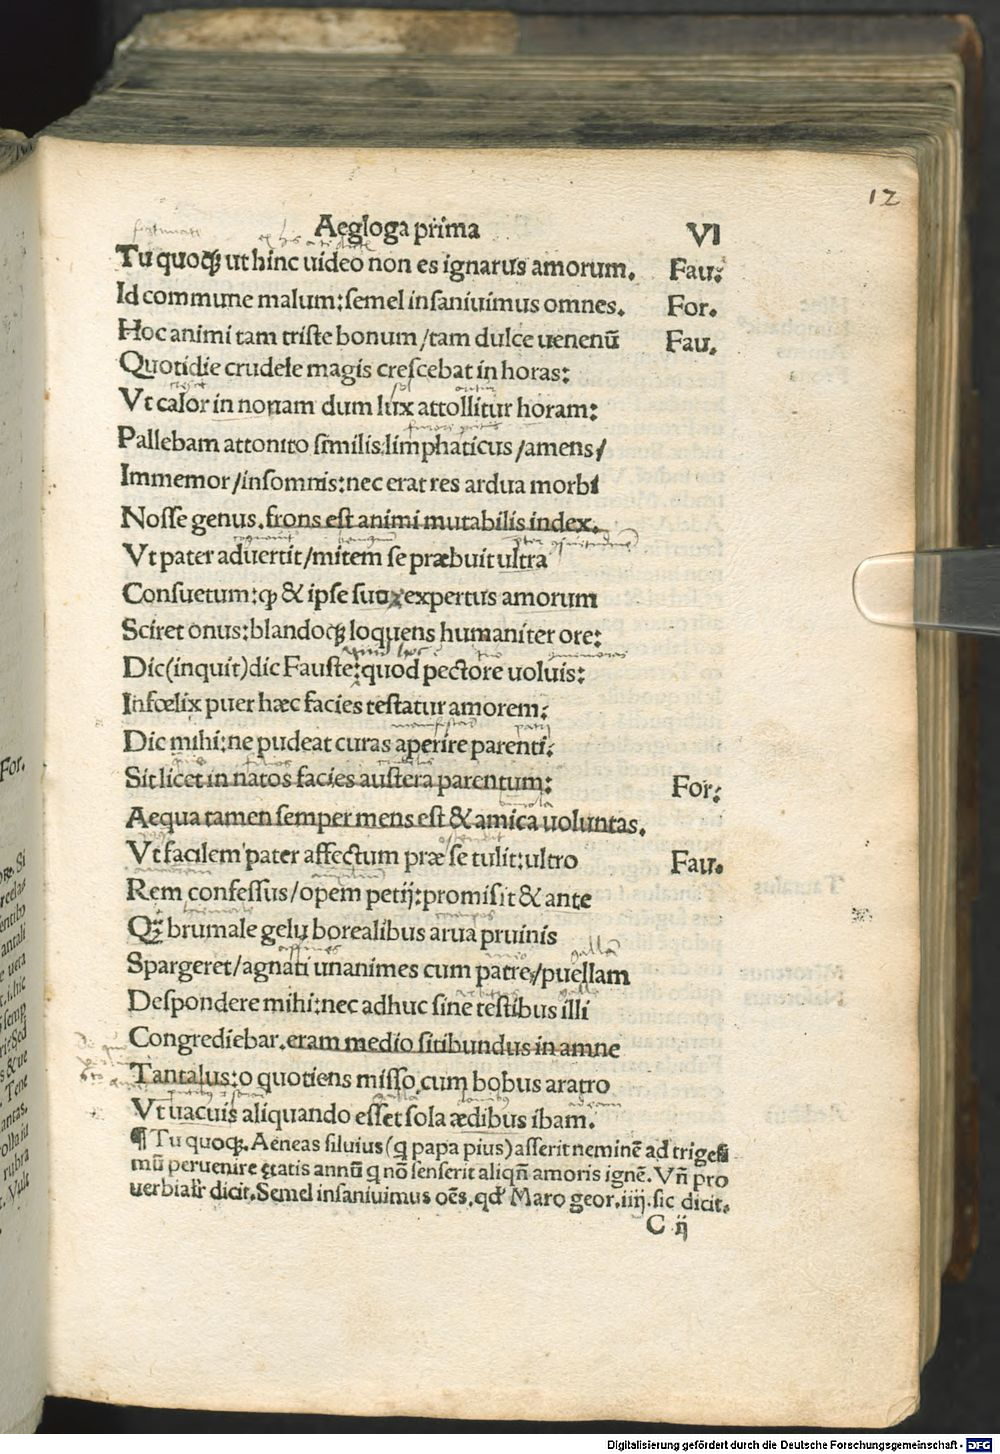 12
Aegloga prima VI
Tu quoqꝫ ut hinc uideo non es ignarus amorum. Fau:
Id commune malum: semel insaniuimus omnes. For.
Hoc animi tam triste bonum/tam dulce uenenū Fau.
Quotidie crudele magis crescebat in horas:
Vt calor in nonam dum lux attollitur horam:
Pallebam attonito similis: limphaticus/amens/
Immemor/insomnis: nec erat res ardua morbi
Nosse genus. frons est animi mutabilis index.
Vt pater aduertit/mitem se præbuit ultra
Consuetum: ꝙ & ipse suoꝝ expertus amorum
Sciret onus: blandoqꝫ loquens humaniter ore:
Dic (inquit) dic Fauste: quod pectore uoluis:
Infœlix puer hæc facies testatur amorem:
Dic mihi: ne pudeat curas aperire parenti:
Sit licet in natos facies austera parentum: For:
Aequa tamen semper mens est & amica uoluntas.
Vt facilem pater affectum præ se tulit: ultro Fau.
Rem confessus/opem petij: promisit & ante
Qꝫ brumale gelu borealibus arua pruinis
Spargeret/agnati unanimes cum patre/puellam
Despondere mihi: nec adhuc sine testibus illi
Congrediebar. eram medio sitibundus in amne
Tantalus: o quotiens misso cum bobus aratro
Vt uacuis aliquando esset sola ædibus ibam.
¶ Tu quoqꝫ. Aeneas siluius (q papa pius) asserit neminē ad trigesi
mū peruenire ętatis annū q nō senserit aliqñ amoris ignē. Vñ pro
uerbialr̄ dicit. Semel insaniuimus oēs. qđ Maro geor. iiij. sic dicit.
C ij
For.
Digitalisierung gefördert durch die Deutsche Forschungsgemeinschaft - DFG